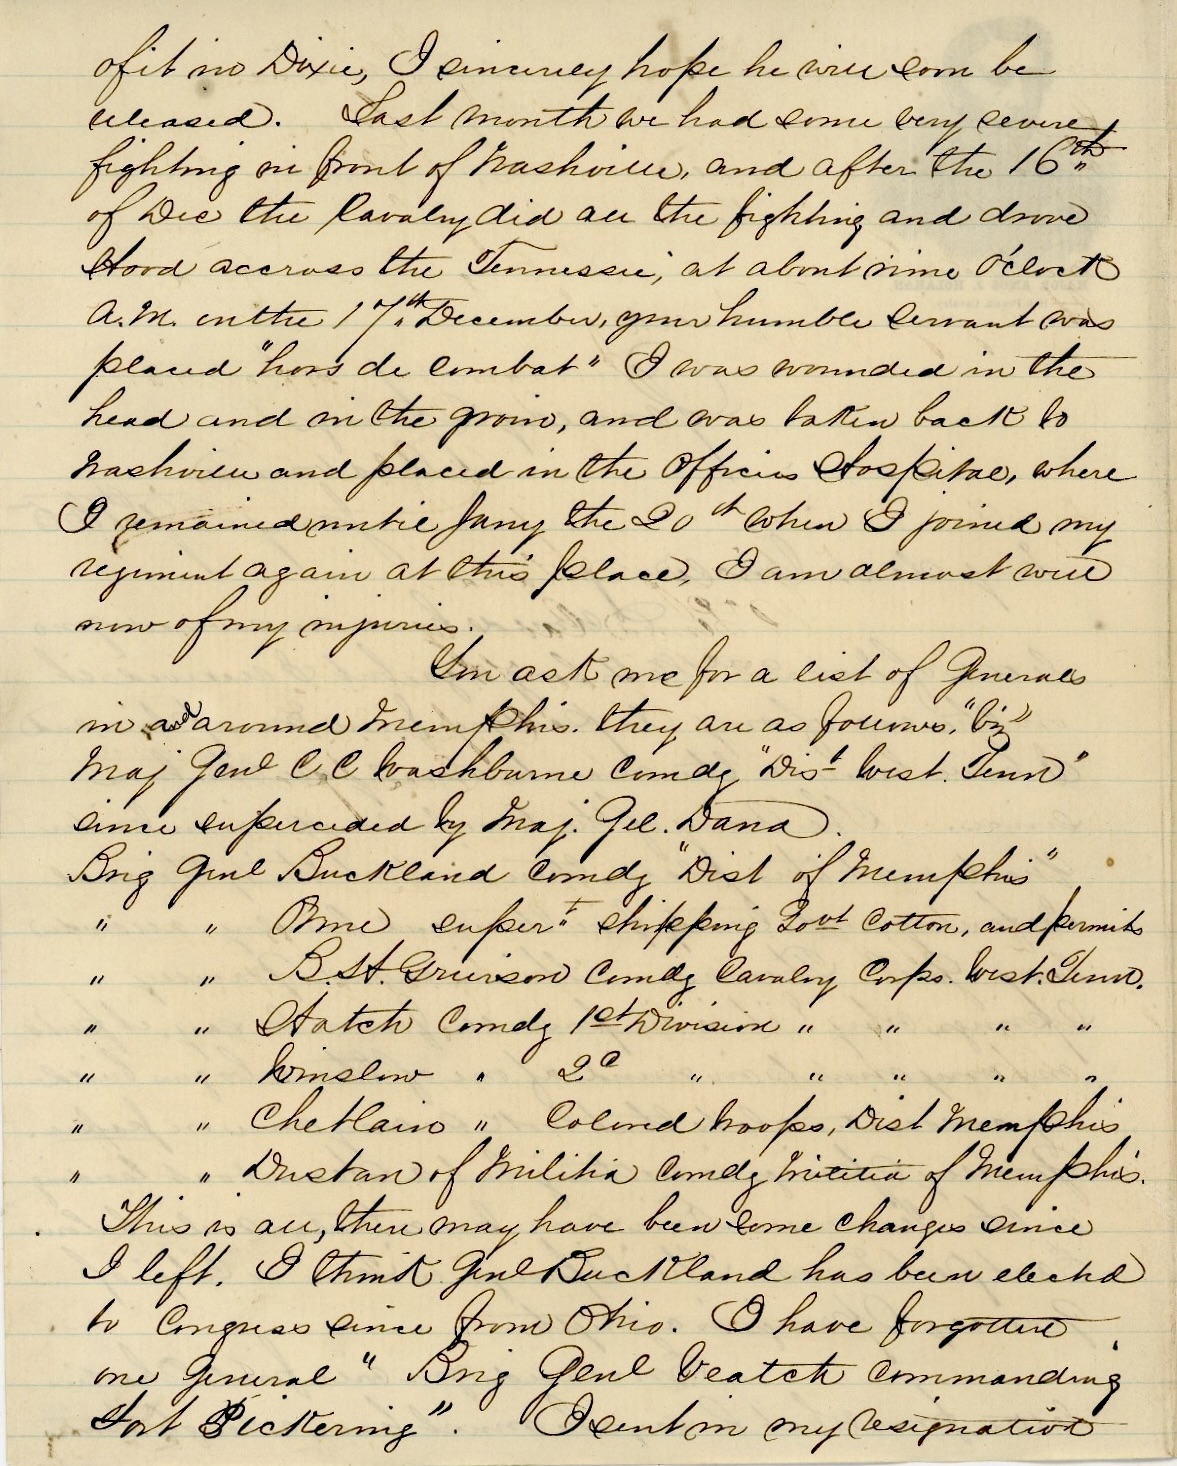 of it in Dixie, I sincerely hope he will soon be
released. Last month we had some very severe
fighting in front of Nashville, and after the 16th
of Dec the Cavalry did all the fighting and drove
Hood accross the Tennessee, at about nine O'clock
A.M. on the 17th December, your humble servant was
placed "hors de combat" I was wounded in the
head and in the groin, and was taken back to
Nashville and placed in the Officers Hospital, where
I remained until Jany the 20th when I joined my
regiment again at this place, I am almost well
now of my injuries.
You ask me for a list of Generals
in and around Memphis. they are as follows. "Viz"
Maj Genl C C Washburne Comdg "Dist West. Tenn"
since superceded by Maj. Gel. Dana.
Brig Genl Buckland Comdg "Dist of Memphis"
" " Orme supert shipping Govt Cotton, and permits
" " B.H. Grierson Comdg Cavalry Corps. West. Tenn.
" " Hatch Comdg 1st Division " " " "
" " Winslow " 2d " " " " "
" " Chetlain " Colored troops, Dist Memphis
" " Dustan of Militia Comdg Militia of Memphis.
This is all, there may have been some changes since
I left. I think Genl Buckland has been elected
to Congress since from Ohio. I have forgotten
one General " Brig Genl Veatch Commanding
Fort Pickering". I sent in my resignation